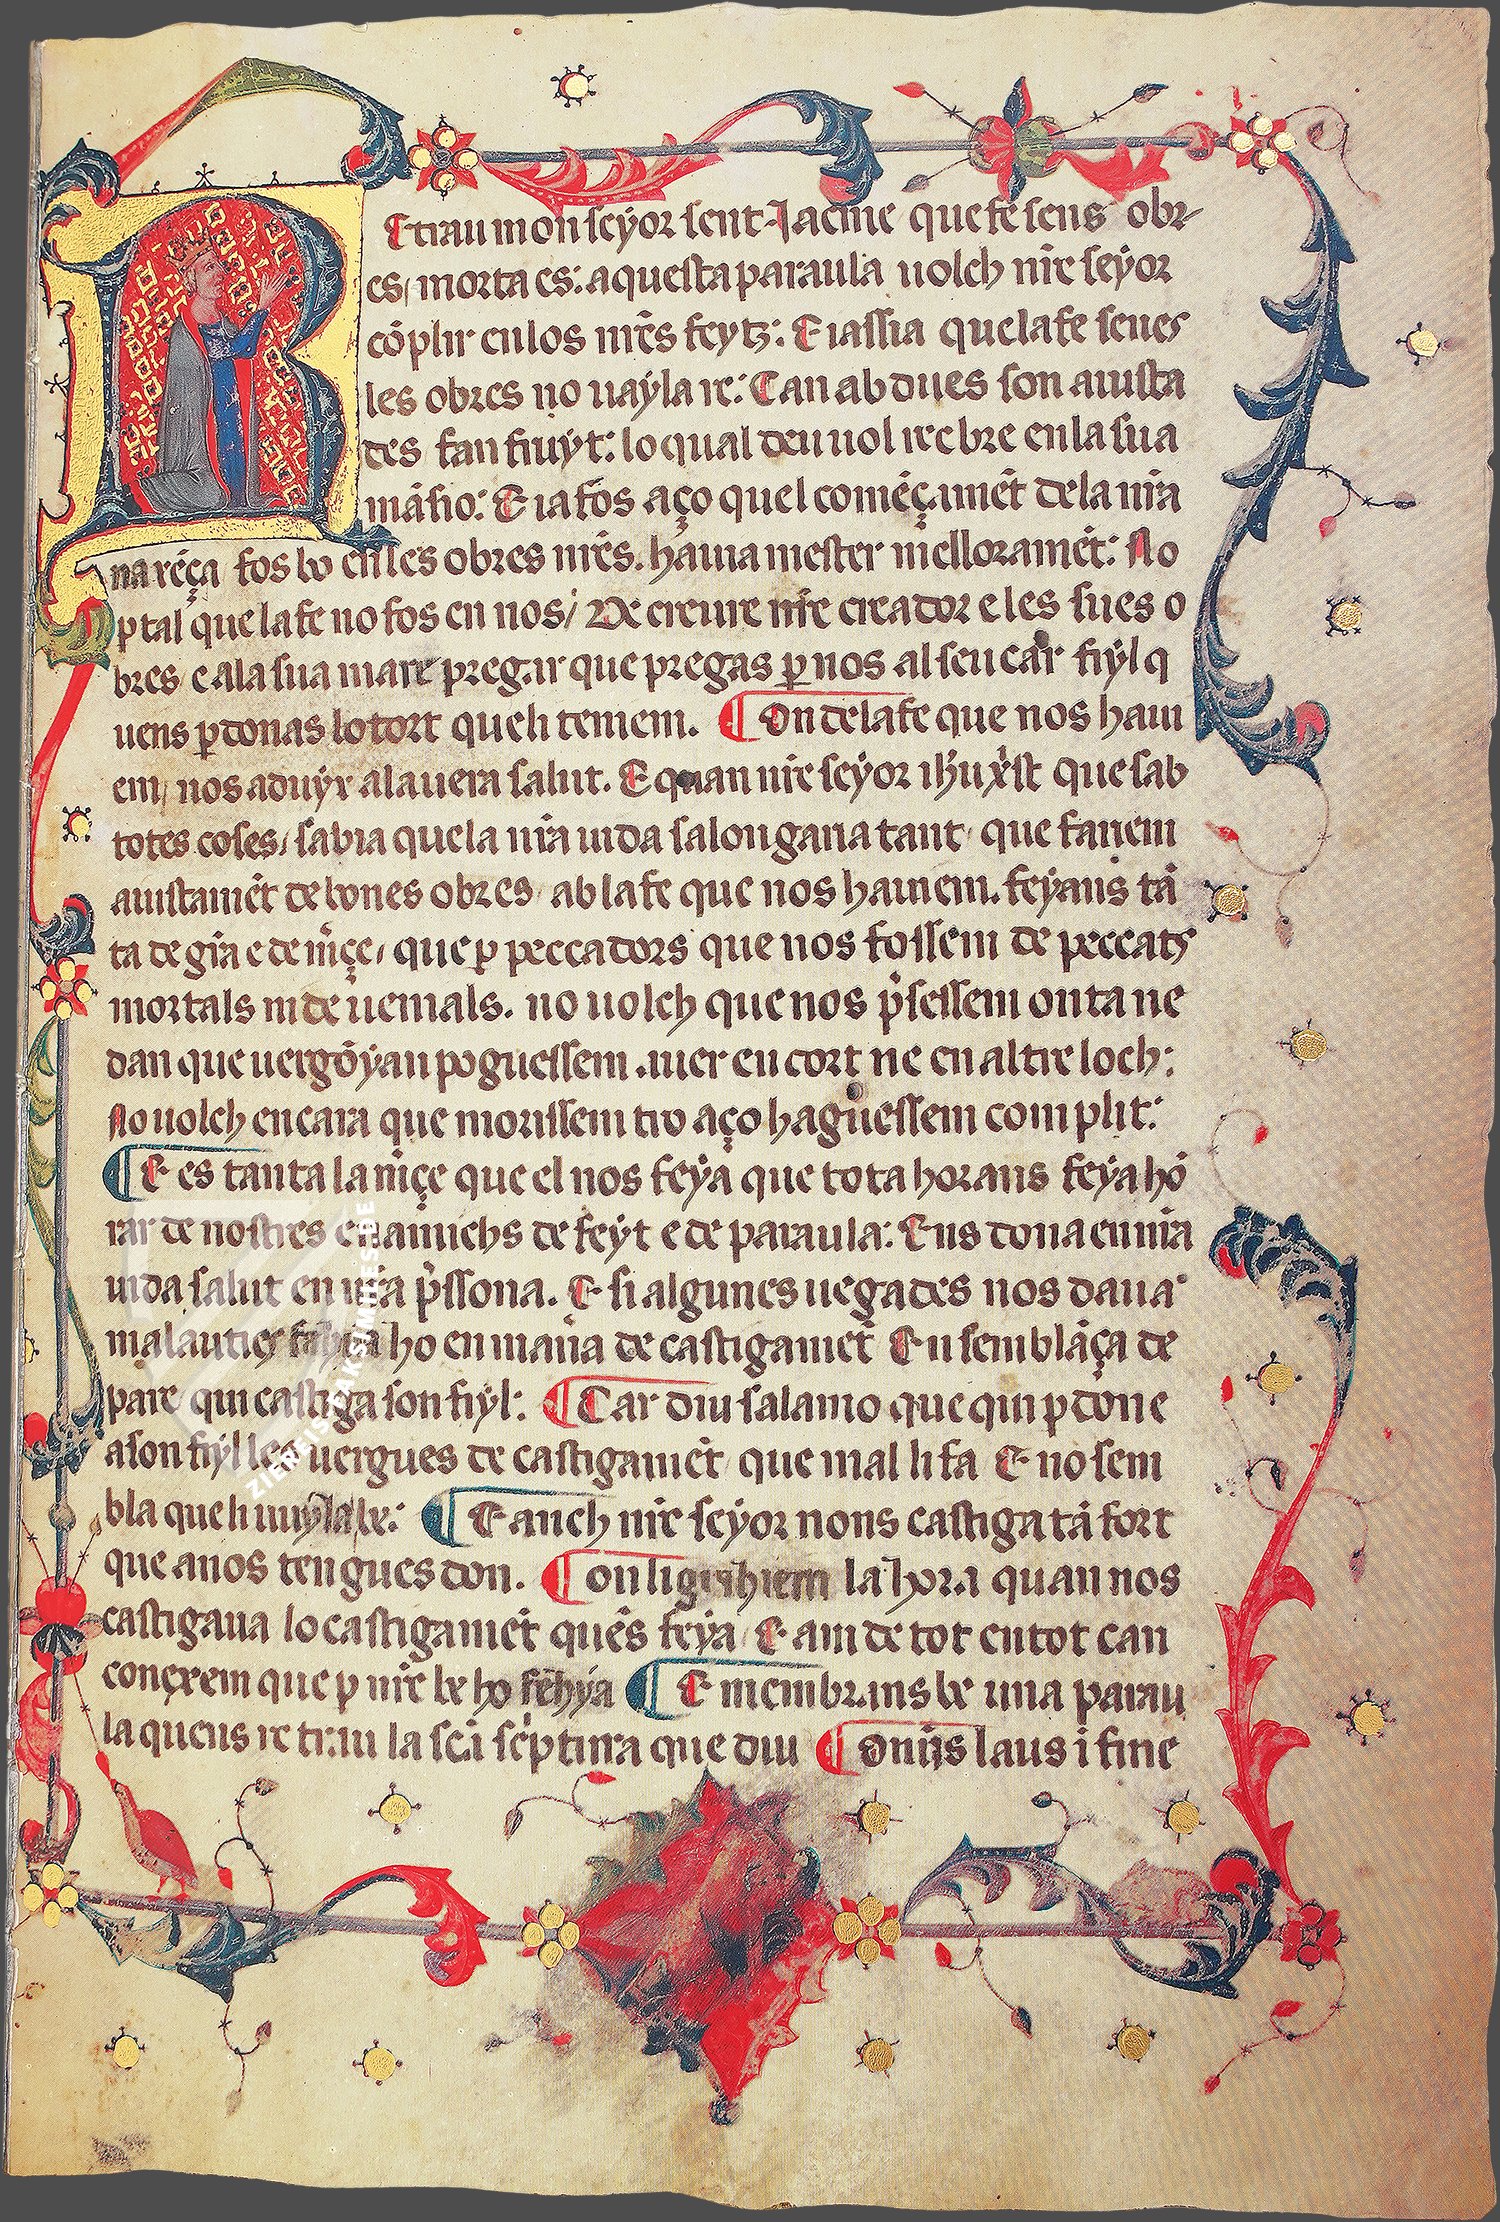 R
Etrau mon seyor sent Jacme que fe sens obr
es, morta es: aquesta paraula uolch nr̃e seyor
cõplir en los nr̃es feytz: E ia ssia que la fe senes
les obres no uayla re: Can abdues son aiusta
des fan fruyt: lo qual deu uol recebre en la sua
mãsio: E ia fos aço quel comẽçamẽt de la nr̃a
naxẽça fos bo en les obres nr̃es. hauia mester melloramẽt: No
p tal que la fe no fos en nos / De creure nr̃e creador e les sues o
bres e a la sua mare pregar que pregas p nos al seu car fiyl q
uens pdonas lo tort queli teniem. ¶ On de la fe que nos haui
em, nos aduyx a la uera salut. E quan nr̃e seyor ihũ xp̃st que sab
totes coses, sabia que la nr̃a uida salongaria tant que fariem
aiustamẽt de bones obres ab la fe que nos hauiem. feyans tã
ta de gr̃a e de m̃çe, que p peccadors que nos fossem de peccats
mortals ni de uenials. no uolch que nos p̃sessem onta ne
dan que uergõyan poguessem auer en cort ne en altre loch:
No uolch encara que morissem tro aço haguessem complit:
¶ E es tanta la m̃çe que el nos feya que tota horans feya hõ
rar de nostres enamichs de feyt e de paraula: Ens dona en nr̃a
uida salut en nr̃a p̃ssona. E si algunes uegades nos daua
malauties ho en mania de castigamẽt En semblãça de
pare qui castiga son fiyl: ¶ Car diu salamo que qui pdone
a son fiyl les uergues de castigamẽt que mal li fa E no sem
bla que li uuyla be: ¶ E anch nr̃e seyor nons castiga tã fort
que a nos tengues don. ¶ On li la hora quan nos
castigaua lo castigamẽt quẽs feya E ara de tot en tot can
conexem que p nr̃e be ho fehya ¶ E membrans be una parau
la quens retrau la sc̃a sc̃ptura que diu ¶ Om̃is laus i fine
ZIEREIS FAKSIMILES.DE